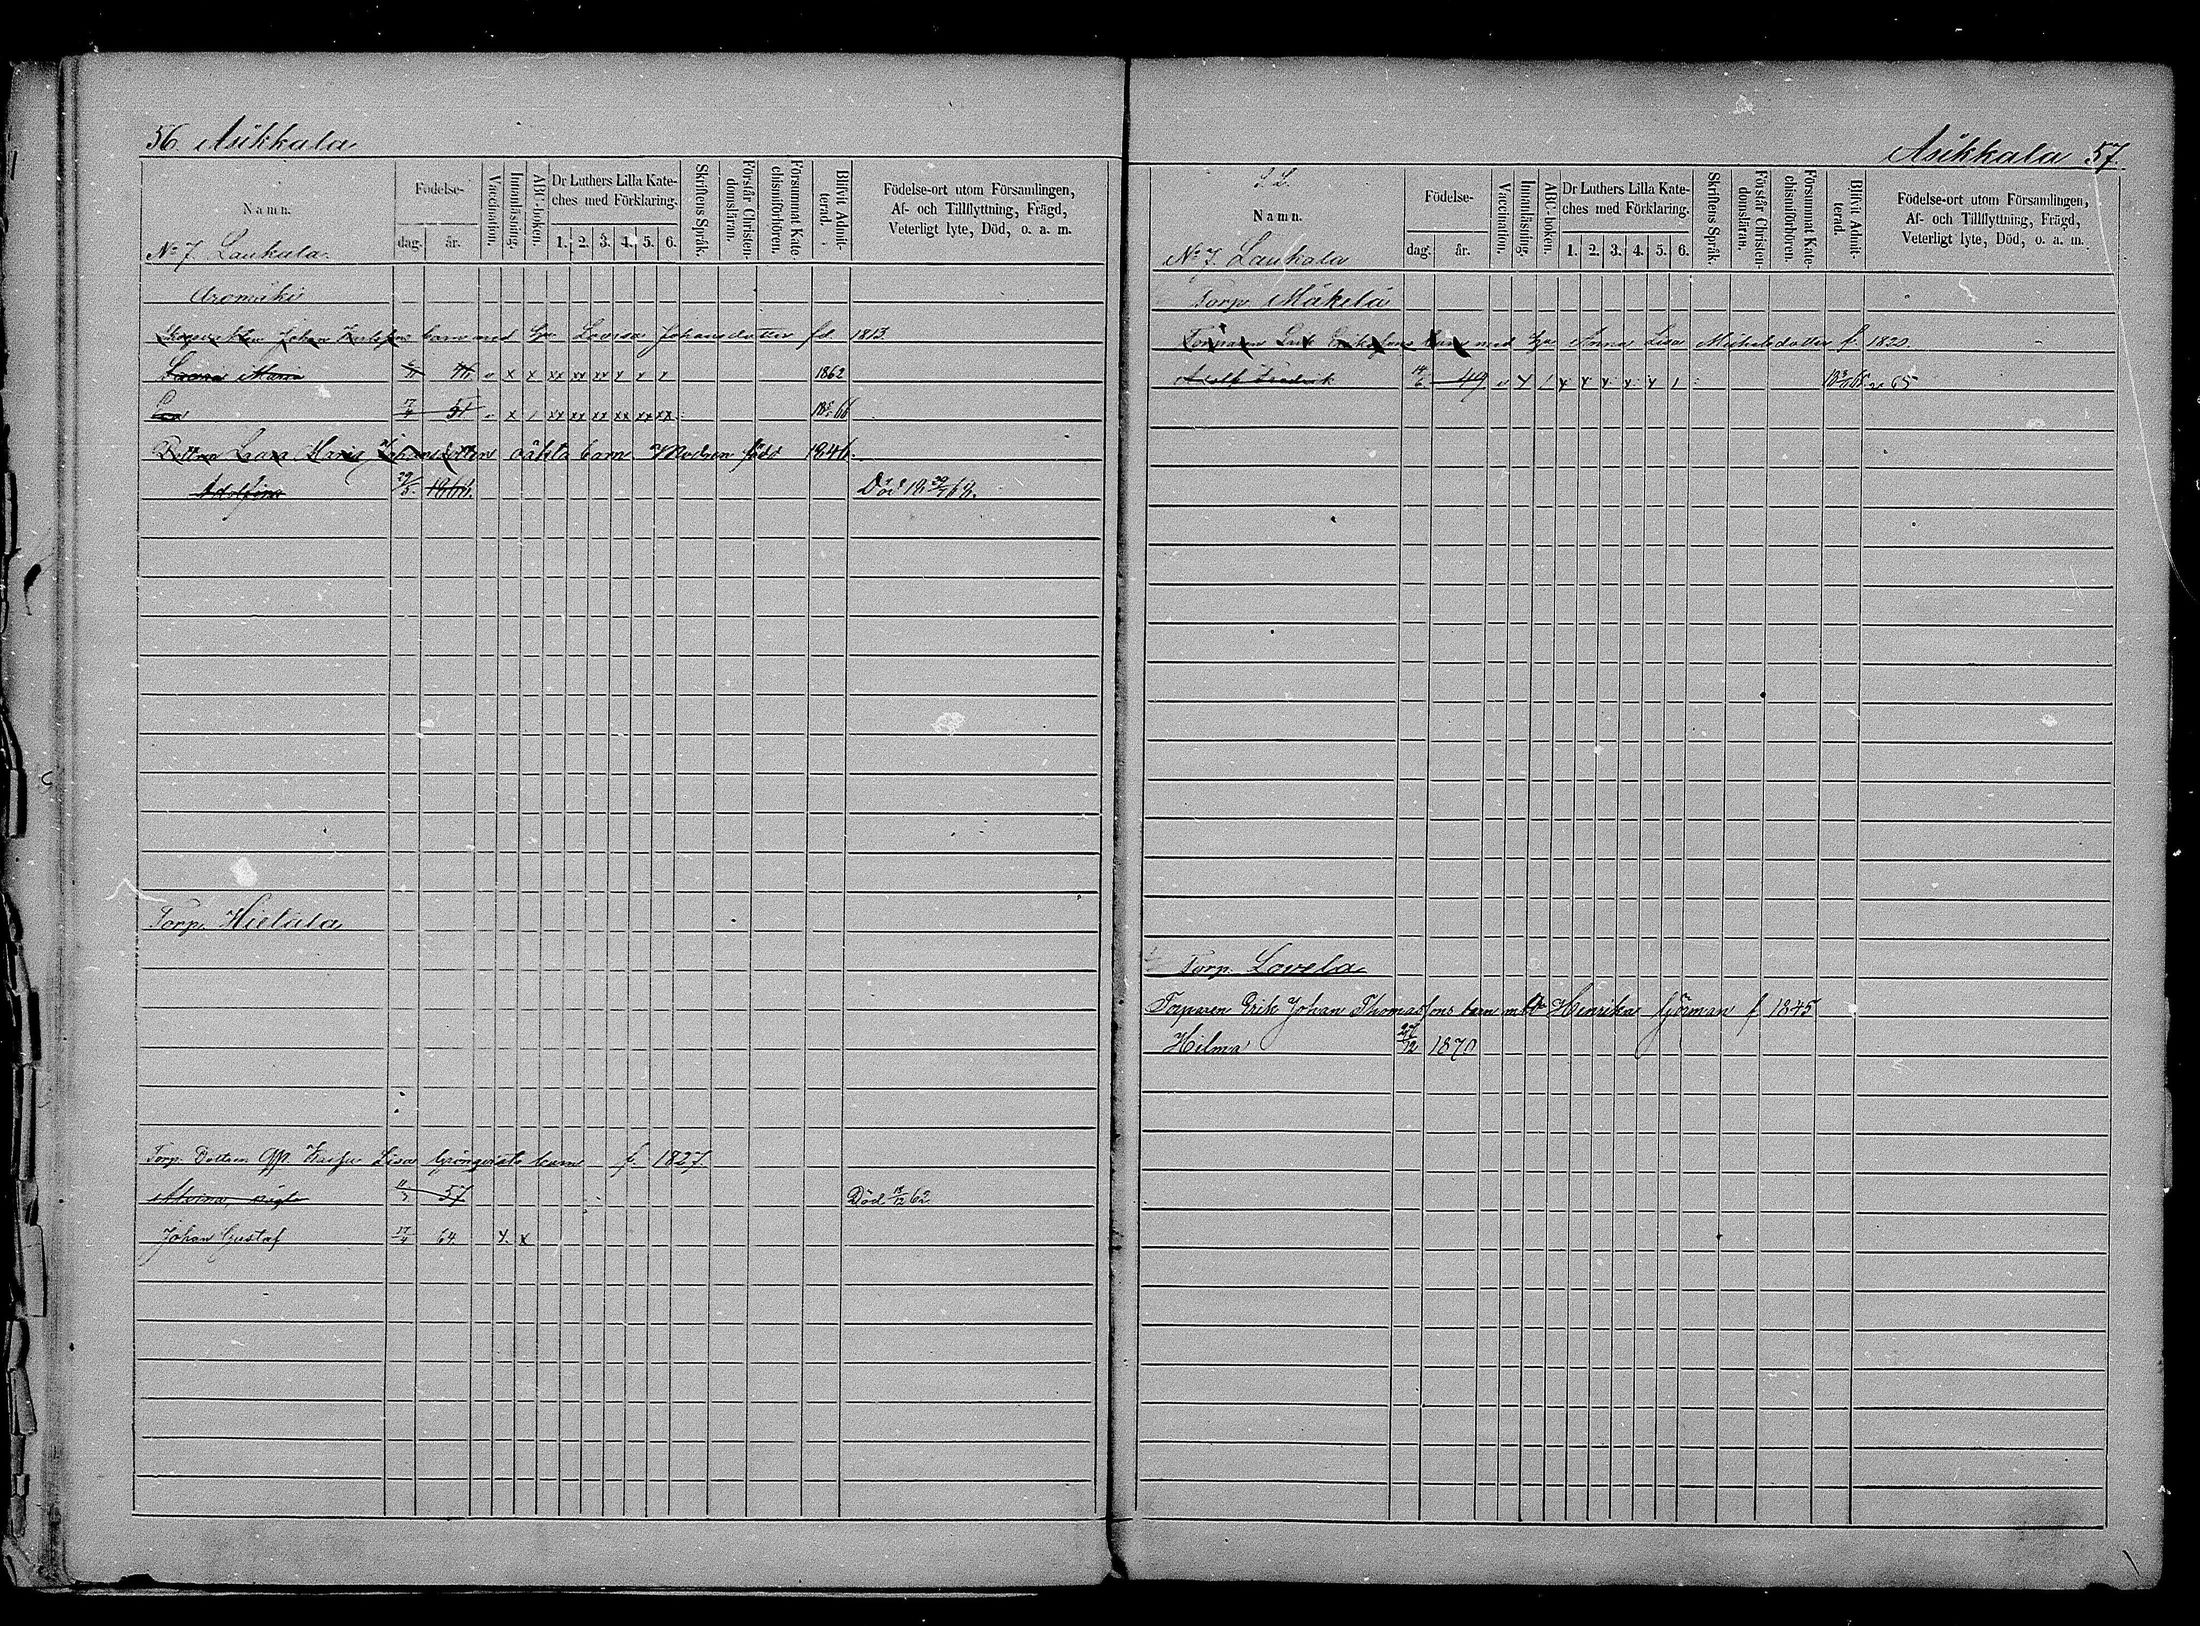 56. Asikkala
Namn.
Födelse-
dag. år.
Vaccination.
Innanläsning.
ABC-boken.
Dr Luthers Lilla Kate-
ches med Förklaring.
1. 2. 3. 4. 5. 6.
Skriftens Språk.
Förstår Christen-
domsläran.
Försummat Kate-
chismiförhören.
Blifvit Admit-
terad.
Födelse-ort utom Församlingen,
Af- och Tillflyttning, Frägd,
Veterligt lyte, Död, o. a. m.
No 7. Laukala
Aromäki
Johan barn med Hu Lovisa Johansdotter fd. 1813.
Laura Maria x x xx xx xx x x x 1862
Eva 17 51 x / xx xx xx xx xx xx 66
Dottren Laura Maria Johansdotters oäkta barn Modren född 1846.
Adolfina 29/5. 1868. Död 68.
Torp. Hietala
Torp. Dottren Lisa Grönqvists barn f. 1827.
57 Död 18/12 62.
Johan Gustaf 64. x. x
Asikkala 57.
Namn.
Födelse-
dag. år.
Vaccination.
Innanläsning.
ABC-boken.
Dr Luthers Lilla Kate-
ches med Förklaring.
1. 2. 3. 4. 5. 6.
Skriftens Språk.
Förstår Christen-
domsläran.
Försummat Kate-
chismiförhören.
Blifvit Admit-
terad.
Födelse-ort utom Församlingen,
Af- och Tillflyttning, Frägd,
Veterligt lyte, Död, o. a. m.
No 7. Laukala
Torp. Mäkelä
Torparen barn med Hu Anna Lisa Michelsdotter f. 1820.
Adolf Fredrik 14/6 49 65
Torp. Lovela
Torparen Erik Johan Thomassons barn m Henrika Görman f. 1845
Hilma 27/12 1870